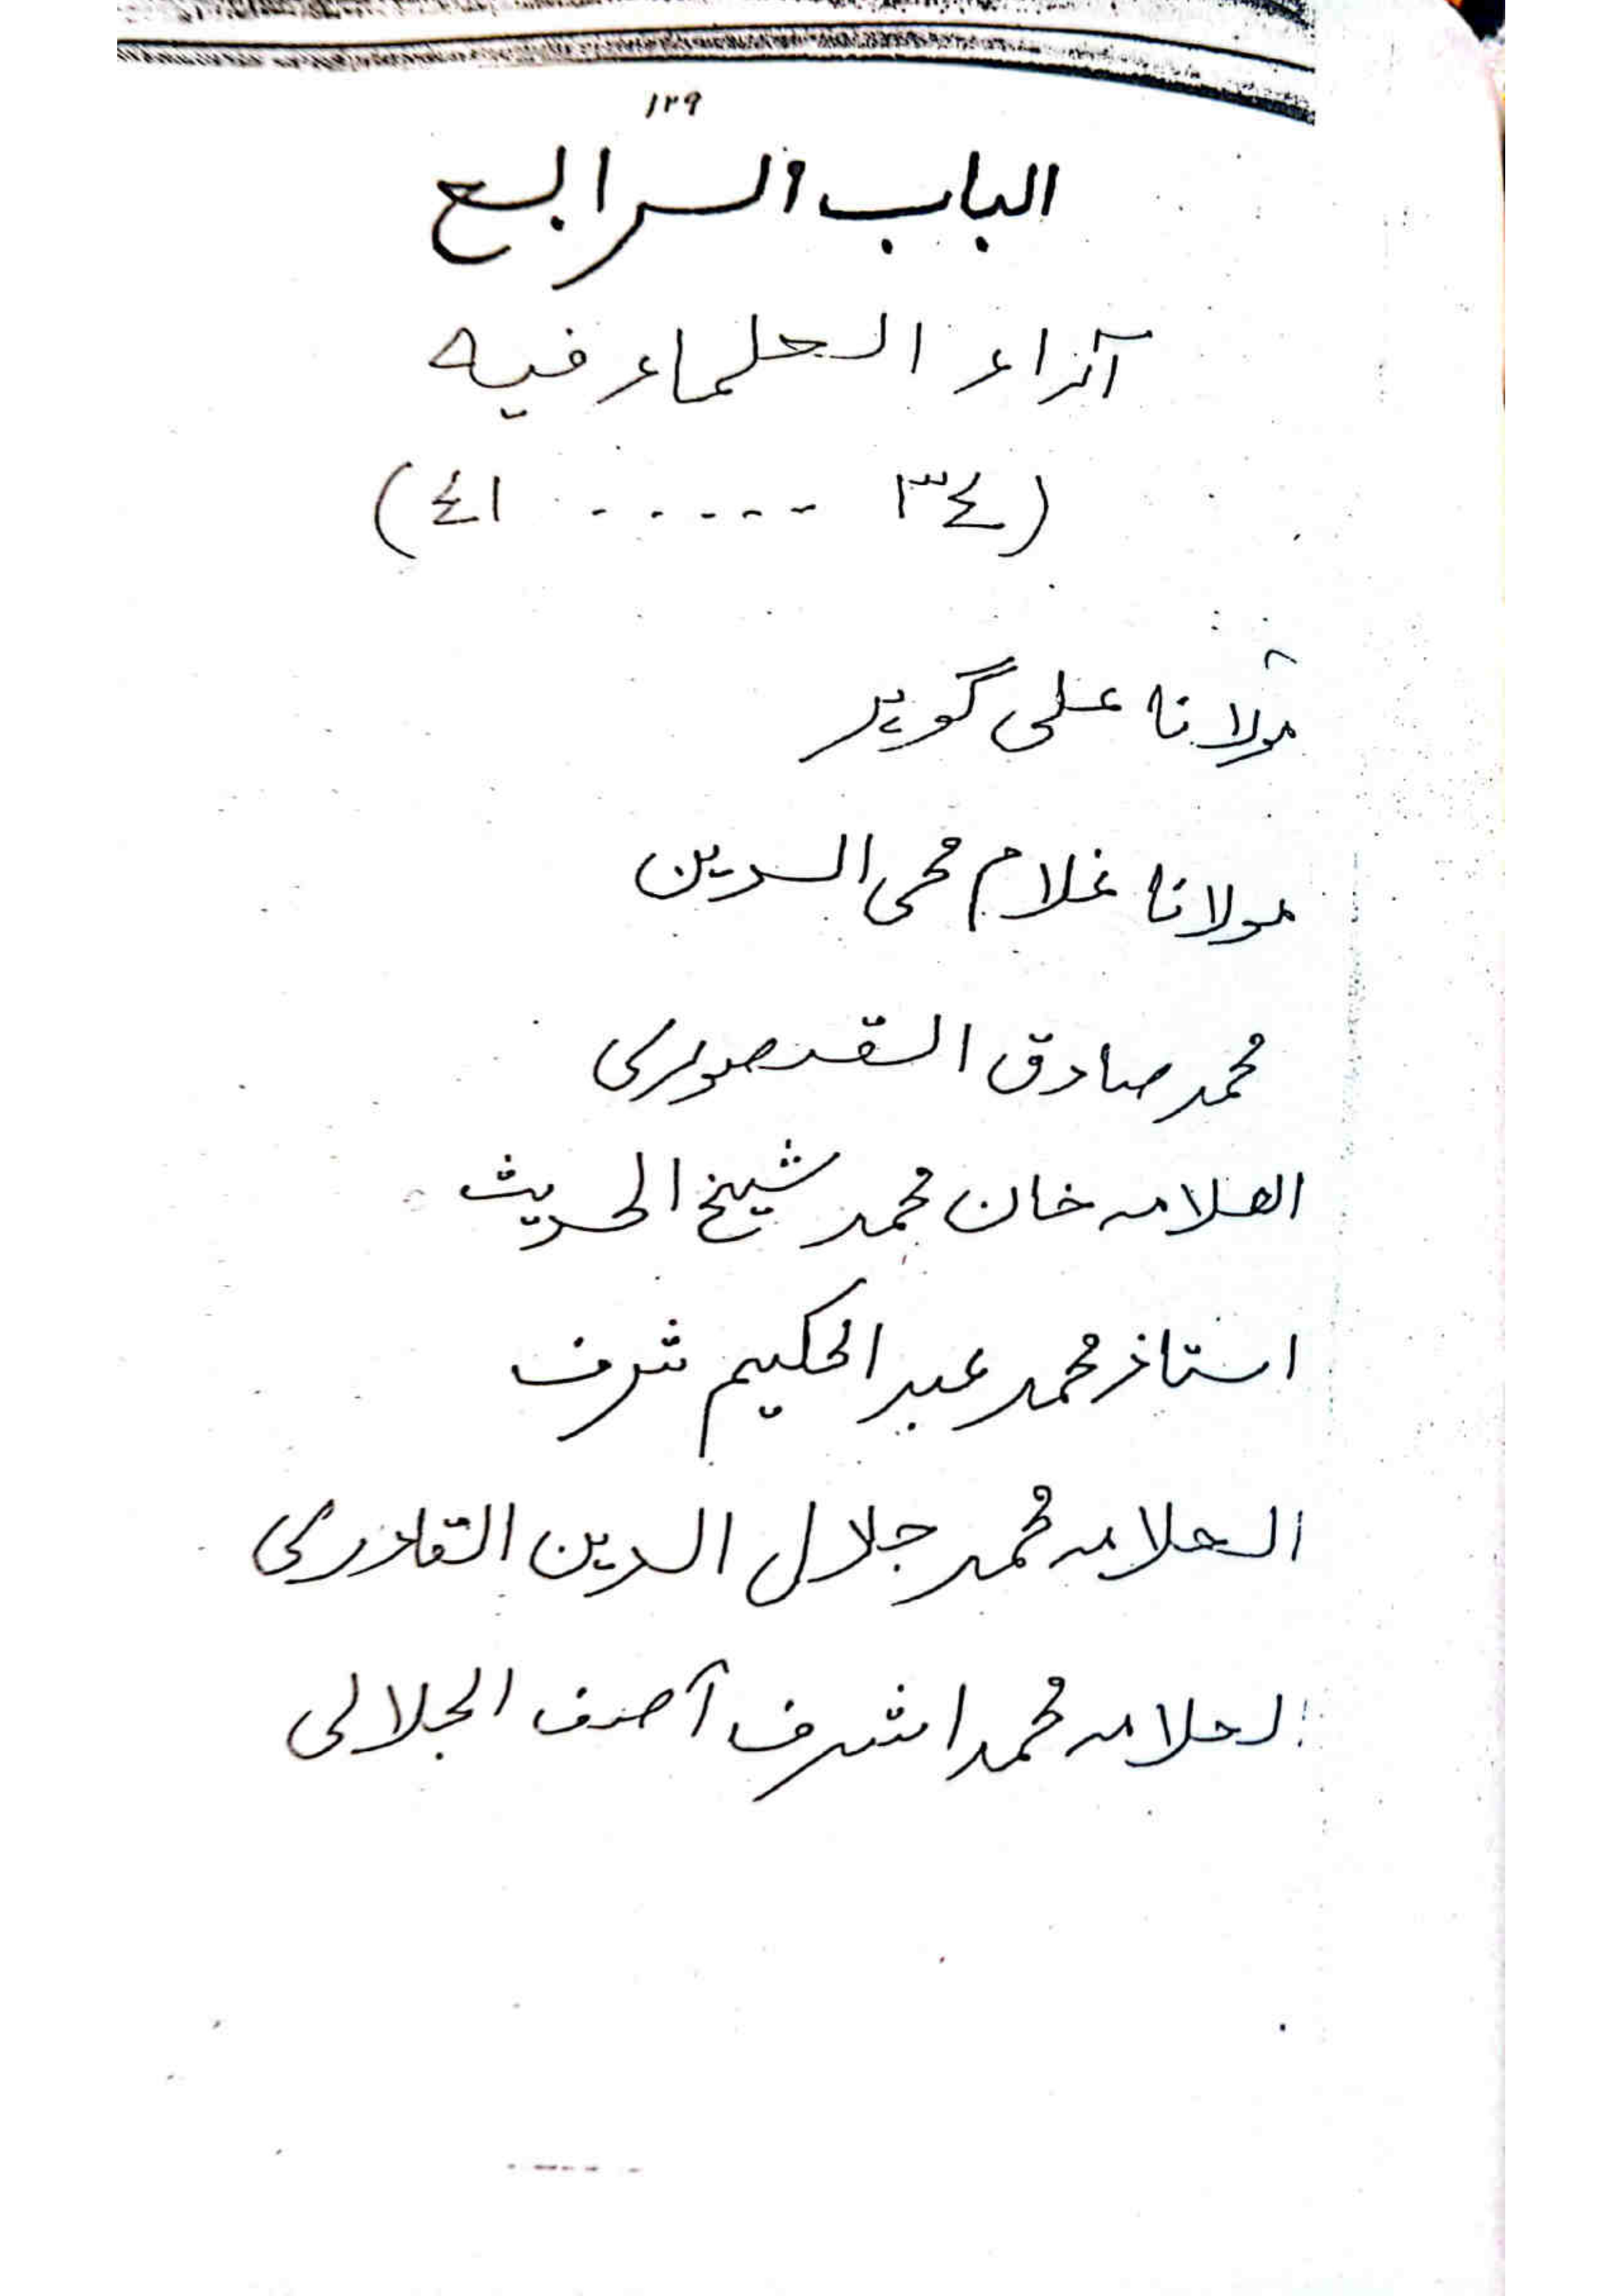 ۱۲۹
الباب الرابع
آراء العلماء فيه
(٣٤ ------ ٤١)
مولانا على گوہر
مولانا غلام محى الدين
محمد صادق القصورى
العلامہ خان محمد شيخ الحديث
استاذ محمد عبد الحكيم شرف
العلامہ محمد جلال الدين القادرى
العلامہ محمد اشرف آصف الجلالى